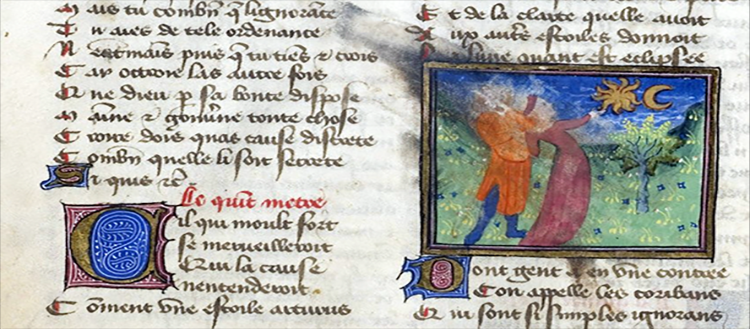 ais tu combñ q̃ lignorante
T u aies de tele ordenance
N est mais puis q̃ tu tiens & crois
ottroie las autre fois
Q ue dieu p sa bonte dispose
M aine & gouũne toute chose
C roire dois quas cause discrete
C ombñ quelle li soit secrete
quis &c̃
Le quit metre
C il qui moult fort
se merueilleroit
Qui la cause
nentendroit
C oment vne estoile arturus
E t de la clarte quelle auoit
A ux autres estoiles donnoit
lune quant est eclipsee
D ont gent a en vne contree
Con appelle les coribans
Q ui sont si simples ignorans